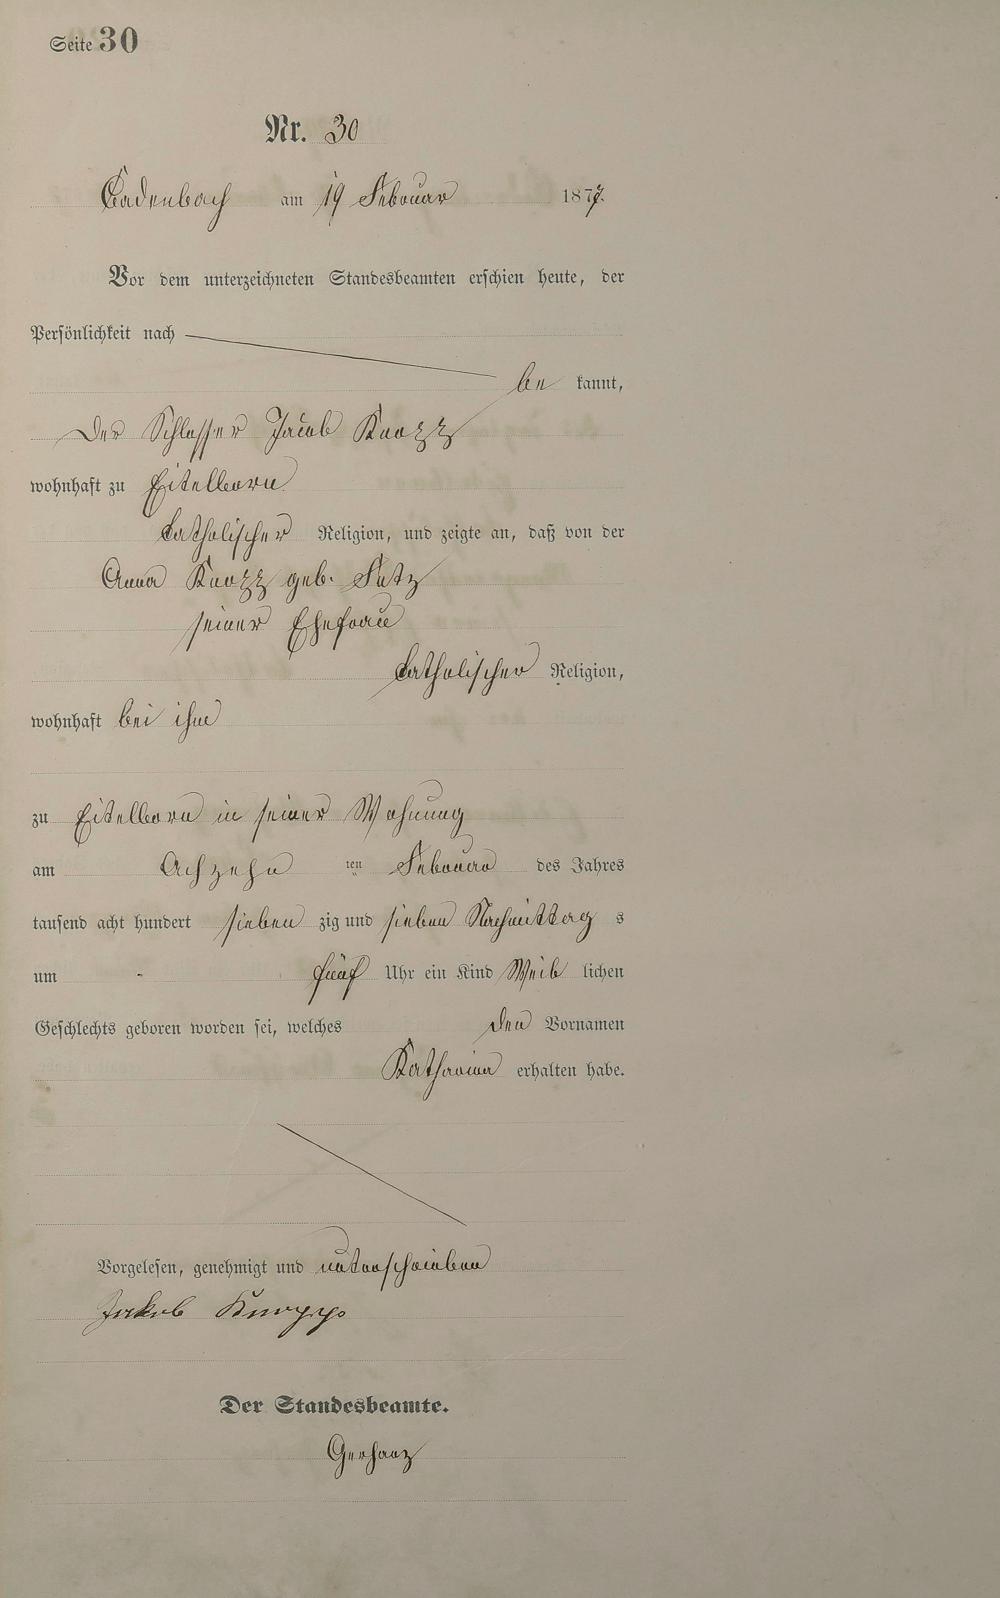 Seite 30
Nr. 30
Cadenbach am 19 Februar 1877.
Vor dem unterzeichneten Standesbeamten erschien heute, der
Persönlichkeit nach
be kannt,
der Schlosser Jacob Knopp
wohnhaft zu Eitelborn
katholischer Religion, und zeigte an, daß von der
Anna Knopp geb.
seiner Ehefrau
katholischer Religion,
wohnhaft bei ihm
zu Eitelborn in seiner Wohnung
am Achzehn ten Februar des Jahres
tausend acht hundert sieben zig und sieben Nachmittag s
um fünf Uhr ein Kind Weib lichen
Geschlechts geboren worden sei, welches den Vornamen
Katharina erhalten habe.
Vorgelesen, genehmigt und unterschrieben
Jakob Knopp
Der Standesbeamte.
Gerharz